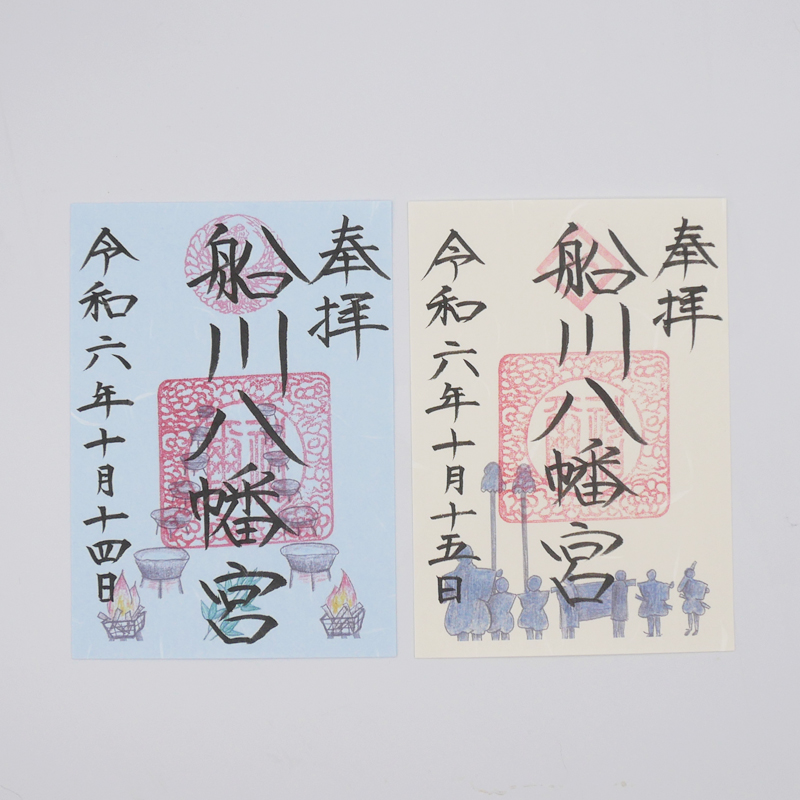 奉拝
船川八幡宮
令和六年十月十四日
奉拝
船川八幡宮
令和六年十月十五日